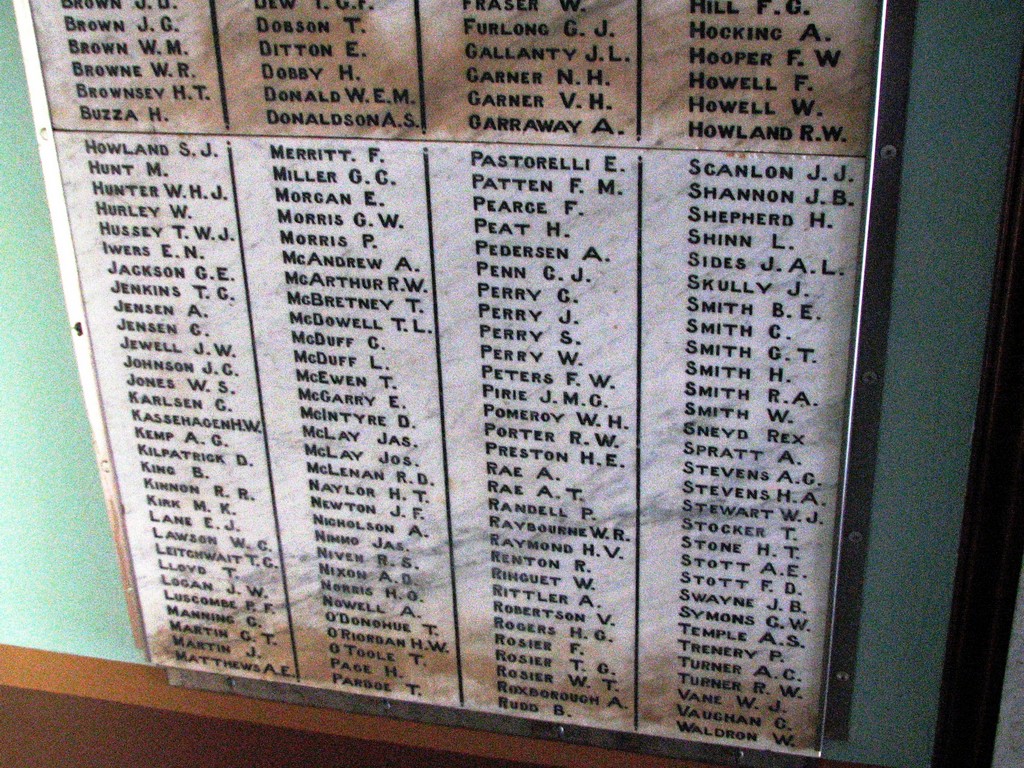 BROWN J.D.
BROWN J.G.
BROWN W.M.
BROWNE W.R.
BROWNSEY H.T.
BUZZA H.
DEW T.G.F.
DOBSON T.
DITTON E.
DOBBY H.
DONALD W.E.M.
DONALDSON A.S.
FRASER W.
FURLONG G.J.
GALLANTY J.L.
GARNER N.H.
GARNER V.H.
GARRAWAY A.
HILL F.G.
HOCKING A.
HOOPER F.W
HOWELL F.
HOWELL W.
HOWLAND R.W.
HOWLAND S.J.
HUNT M.
HUNTER W.H.J.
HURLEY W.
HUSSEY T.W.J.
IWERS E.N.
JACKSON G.E.
JENKINS T.G.
JENSEN A.
JENSEN C.
JEWELL J.W.
JOHNSON J.G.
JONES W.S.
KARLSEN C.
KASSEHAGEN H.W.
KEMP A.G.
KILPATRICK D.
KING B.
KINNON R.R.
KIRK M.K.
LANE E.J.
LAWSON W.G.
LEITCHWAIT T.G.
LLOYD T.
LOGAN J.W.
LUSCOMBE P.F.
MANNING G.
MARTIN G.T.
MARTIN J.
MATTHEWS A.E.
MERRITT. F.
MILLER G.C.
MORGAN E.
MORRIS G.W.
MORRIS P.
MCANDREW A.
MCARTHUR R.W.
MCBRETNEY T.
MCDOWELL T.L.
MCDUFF C.
MCDUFF L.
MCEWEN T.
MCGARRY E.
MCINTYRE D.
MCLAY JAS.
MCLAY JOS.
MCLENAN R.D.
NAYLOR H.T.
NEWTON J.F.
NICHOLSON A.
NIMMO JAS.
NIVEN R.S.
NIXON A.D.
NORRIS H.O.
NOWELL A.
O'DONOHUE T.
O'RIORDAN H.W.
O'TOOLE T.
PAGE H.
PARDOE T.
PASTORELLI E.
PATTEN F.M.
PEARCE F.
PEAT H.
PEDERSEN A.
PENN C.J.
PERRY C.
PERRY J.
PERRY S.
PERRY W.
PETERS F.W.
PIRIE J.M.G.
POMEROY W.H.
PORTER R.W.
PRESTON H.E.
RAE A.
RAE A.T.
RANDELL P.
RAYBOURNE W.R.
RAYMOND H.V.
RENTON R.
RINGUET W.
RITTLER A.
ROBERTSON V.
ROGERS H.G.
ROSIER F.
ROSIER T.G.
ROSIER W.T.
ROXBOROUGH A.
RUDD B.
SCANLON J.J.
SHANNON J.B.
SHEPHERD H.
SHINN L.
SIDES J.A.L.
SKULLY J.
SMITH B.E.
SMITH C.
SMITH G.T.
SMITH H.
SMITH R.A.
SMITH W.
SNEYD REX
SPRATT A.
STEVENS A.G.
STEVENS H.A.
STEWART W.J.
STOCKER T.
STONE H.T.
STOTT A.E.
STOTT F.D.
SWAYNE J.B.
SYMONS G.W.
TEMPLE A.S.
TRENERY P.
TURNER A.C.
TURNER R.W.
VANE W.J.
VAUGHAN C.
WALDRON W.